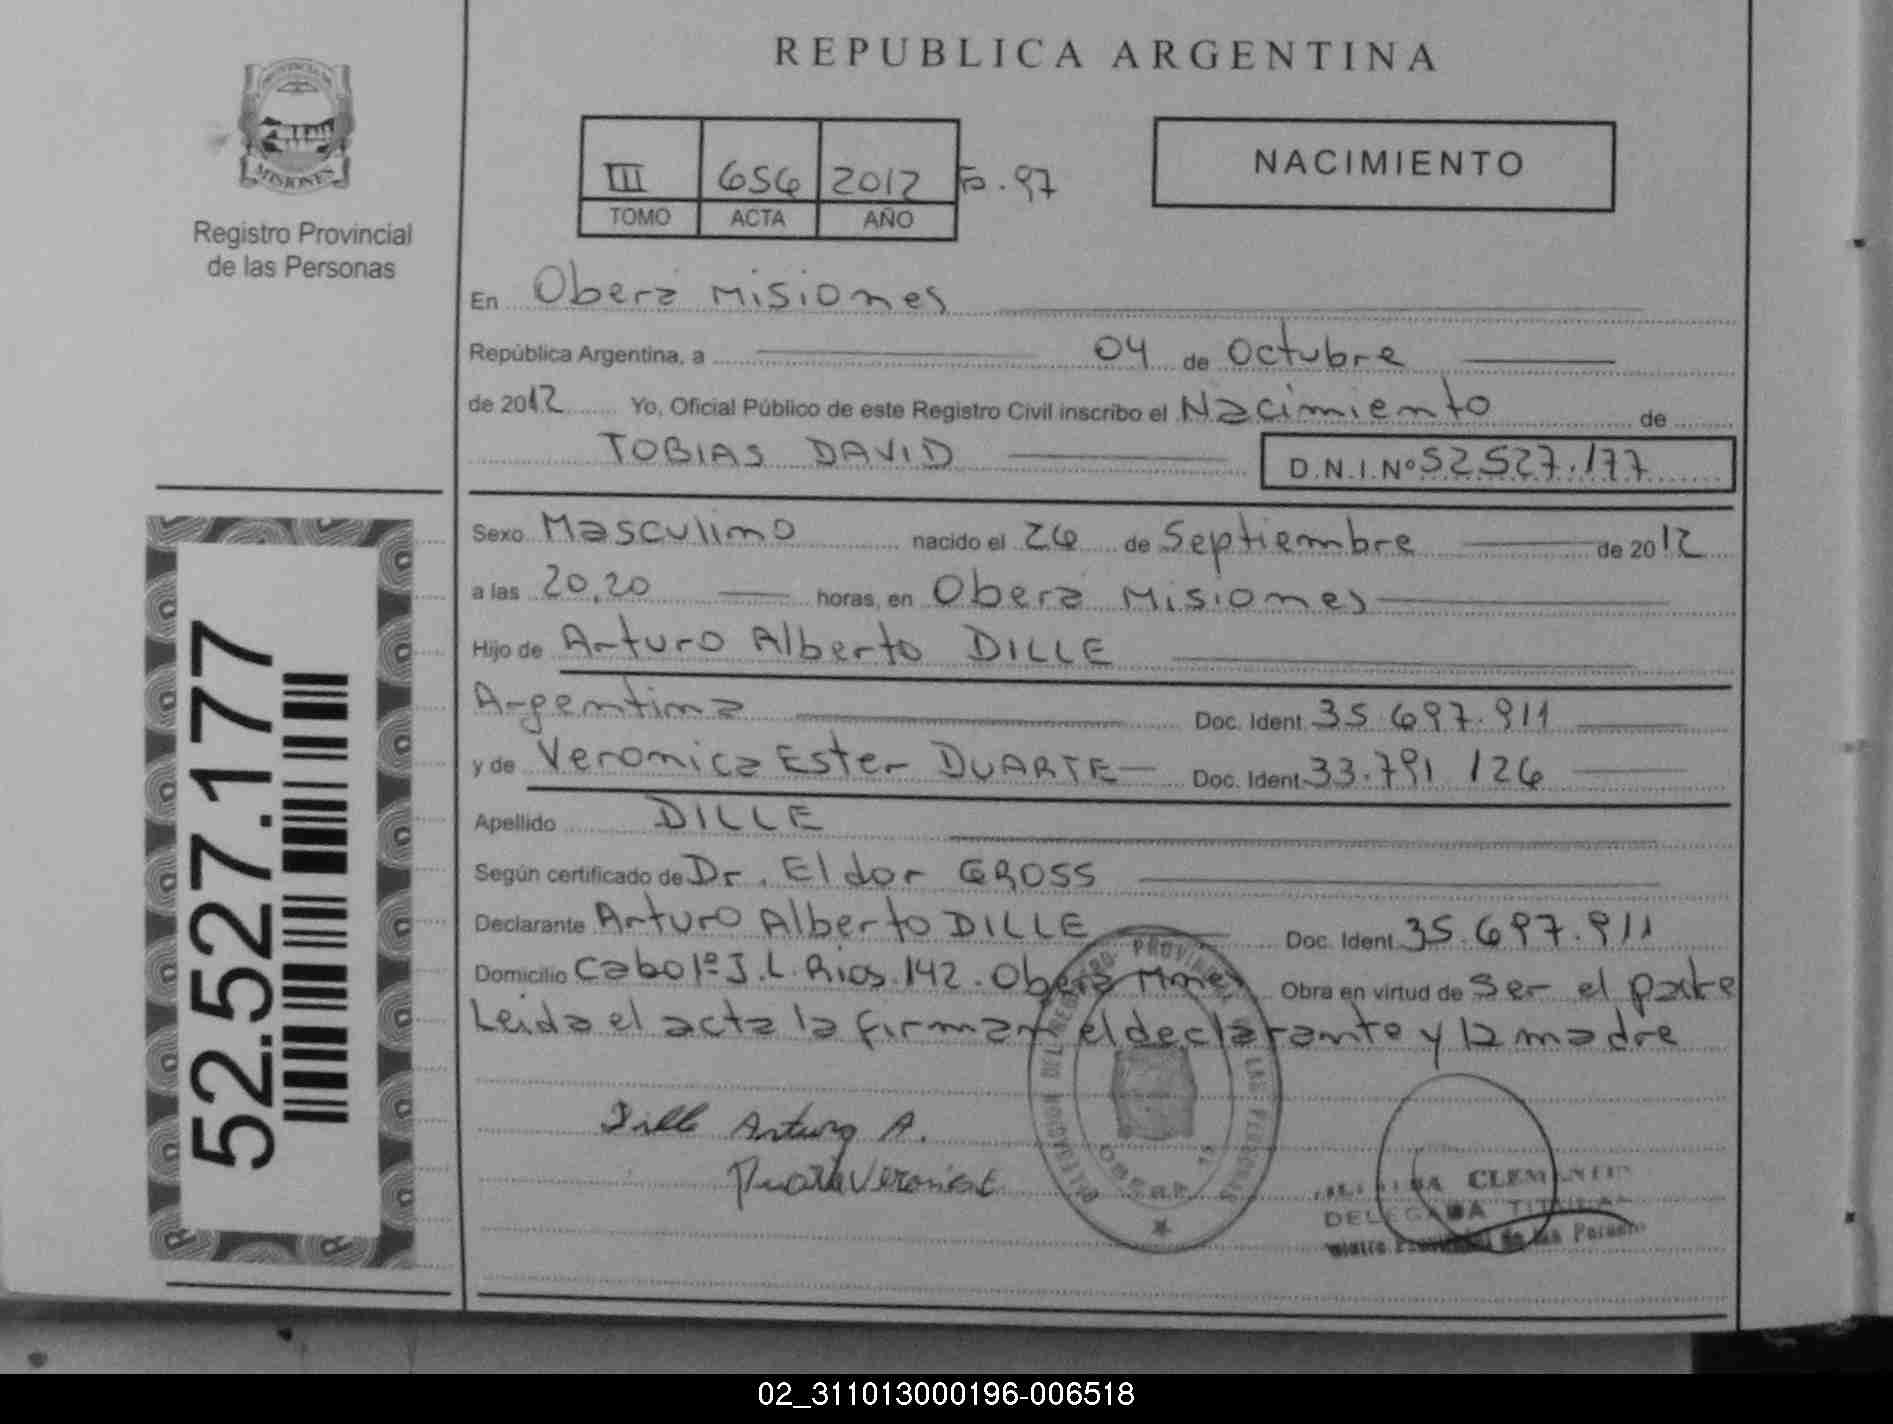 REPUBLICA ARGENTINA
PROVINCIA DE
MISIONES
Registro Provincial
de las Personas
III 656 2012 Fo. 97
TOMO ACTA AÑO
NACIMIENTO
En Oberá Misiones
República Argentina, a 04 de Octubre
de 2012 Yo, Oficial Público de este Registro Civil inscribo el Nacimiento de
TOBIAS DAVID D.N.I. Nº 52.527.177
Sexo Masculino nacido el 26 de Septiembre de 2012
a las 20,20 horas, en Oberá Misiones
Hijo de Arturo Alberto DILLE
Argentina Doc. Ident. 35.697.911
y de Veronica Ester DUARTE Doc. Ident. 33.791.126
Apellido DILLE
Según certificado de Dr. Eldor GROSS
Declarante Arturo Alberto DILLE Doc. Ident. 35.697.911
Domicilio Cabo 1º J.L. Rios 142. Oberá Mnes Obra en virtud de Ser el padre
Leida el acta la firman el declarante y la madre
Dille Arturo A.
Duarte Veronica E
OBERA
CLEMENTE
DELEGADA TITULAR
52.527.177
02_311013000196-006518